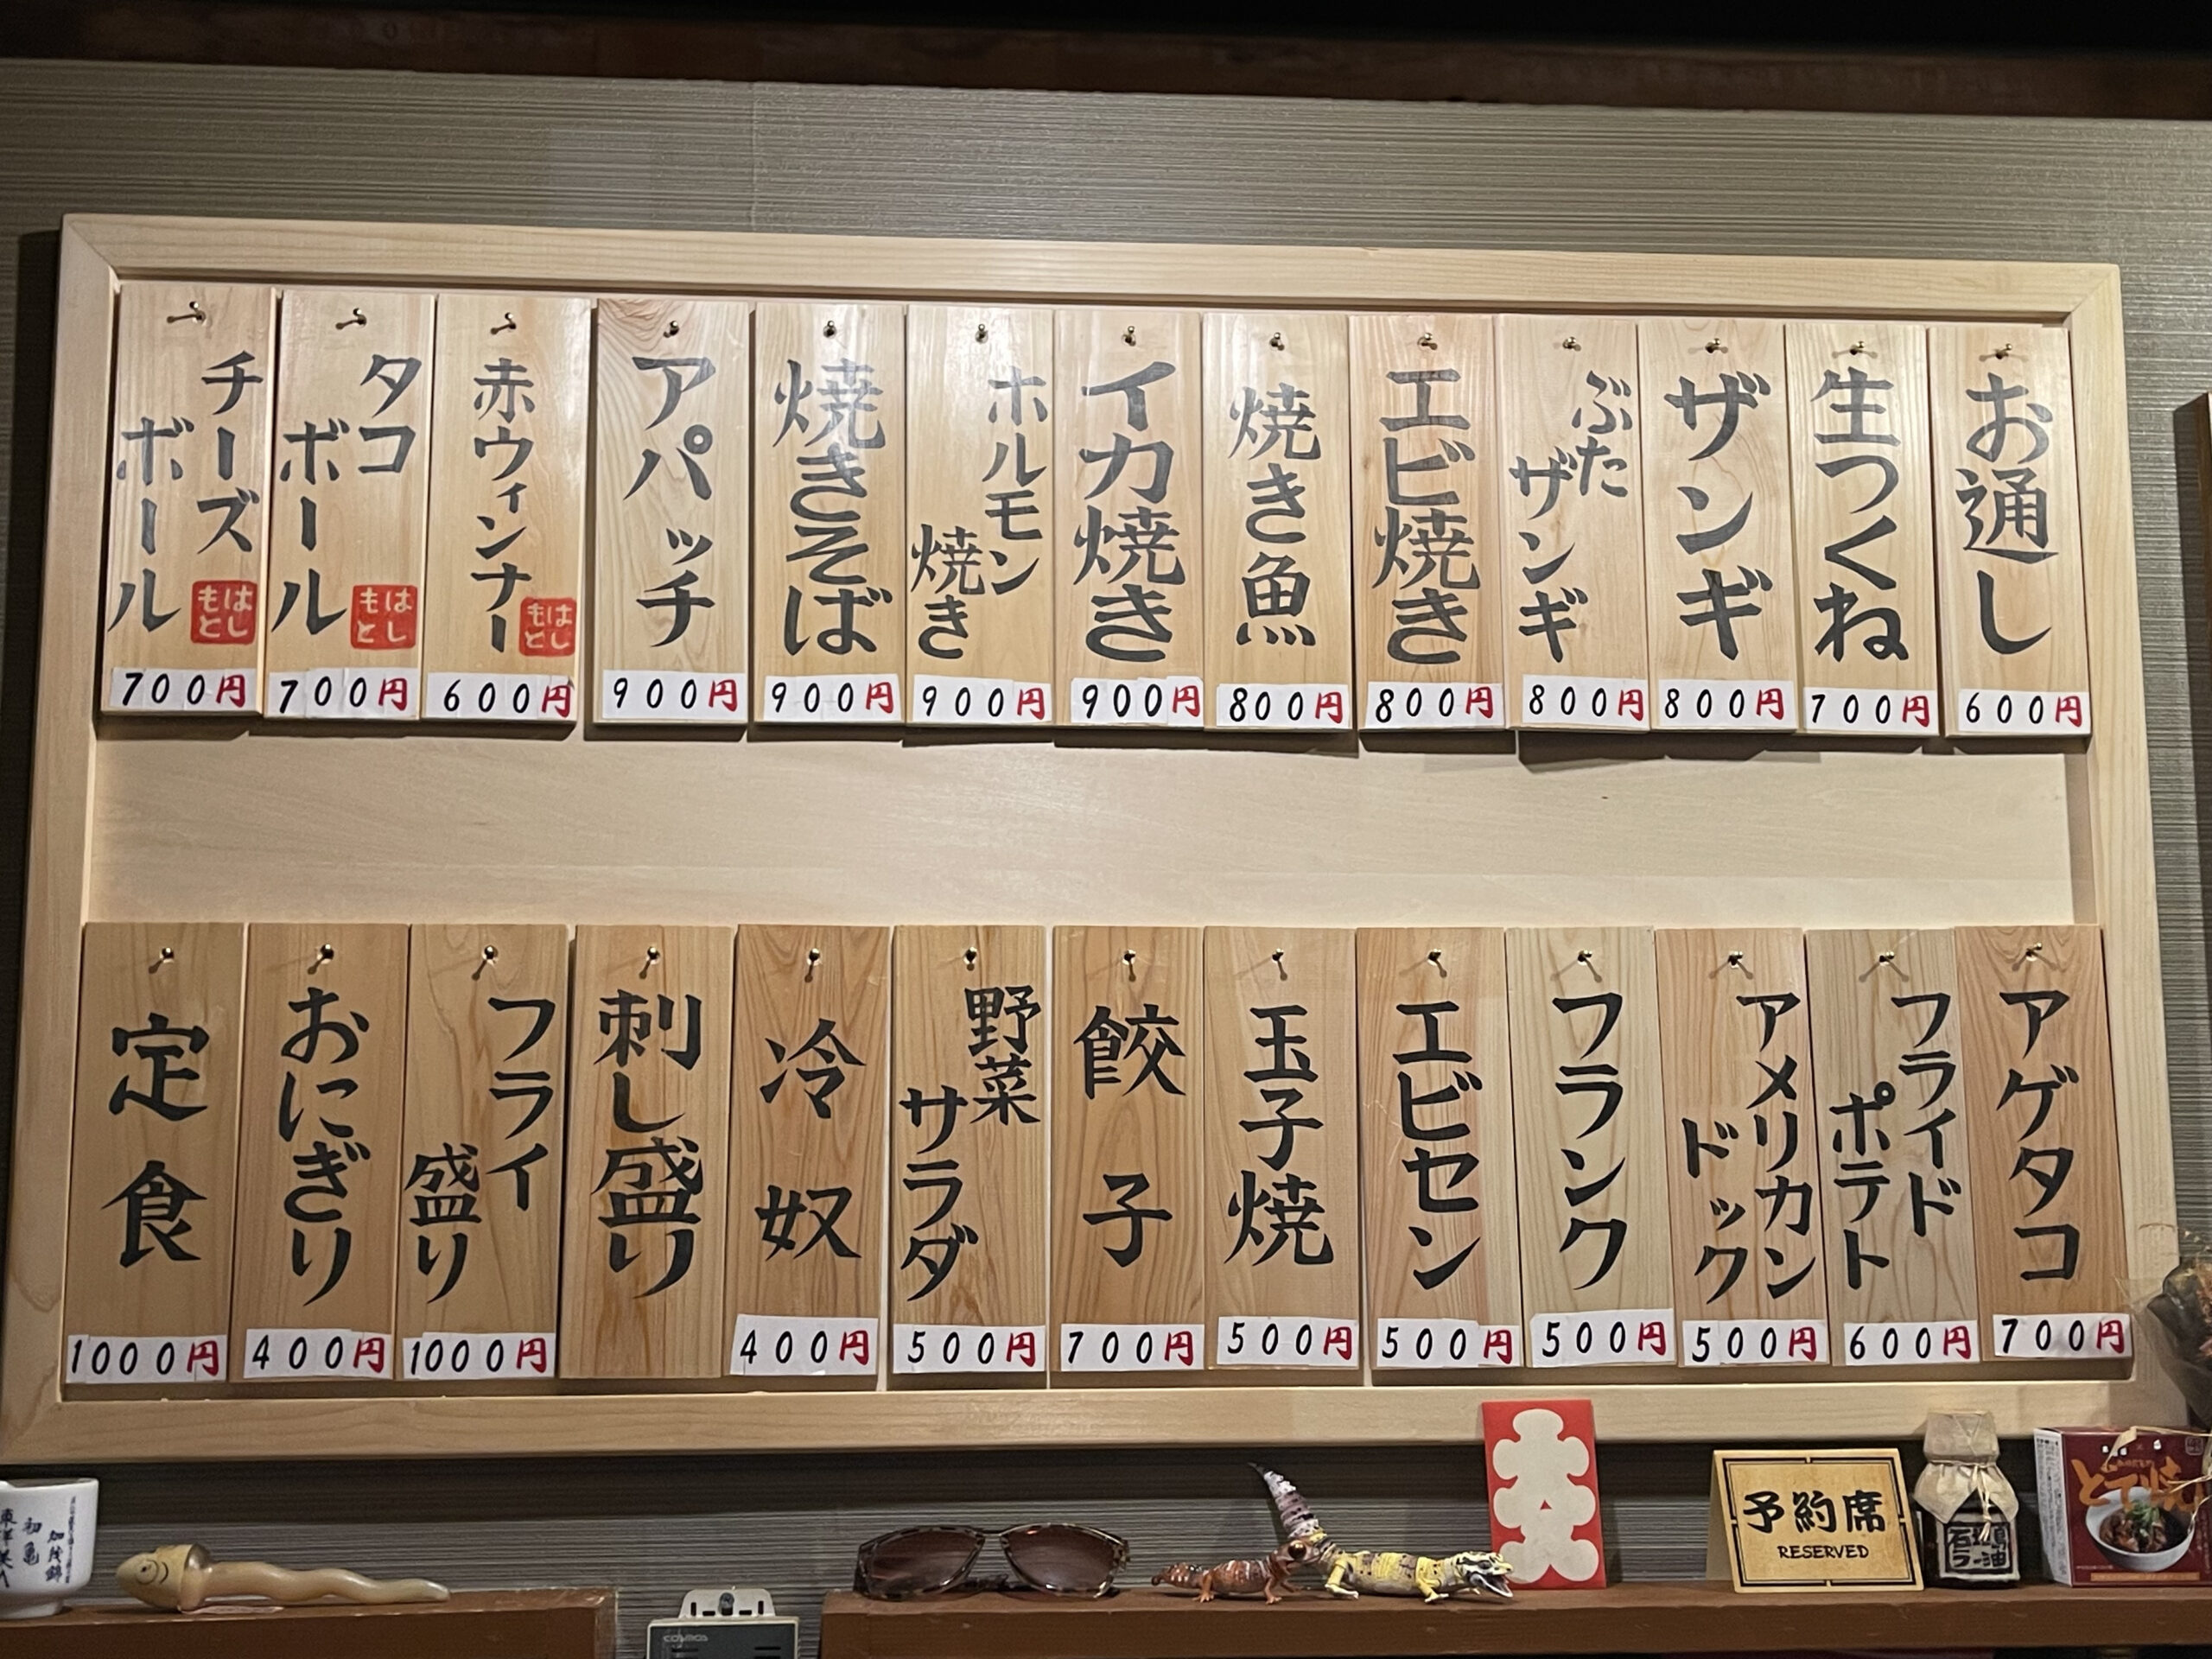 お通し
600円
生つくね
700円
ザンギ
800円
ぶた
ザンギ
800円
エビ焼き
800円
焼き魚
800円
イカ焼き
900円
ホルモン
焼き
900円
焼きそば
900円
アパッチ
900円
赤ウィンナー
はし
もと
600円
タコ
ボール
はし
もと
700円
チーズ
ボール
はし
もと
700円
アゲタコ
700円
フライド
ポテト
600円
アメリカン
ドック
500円
フランク
500円
エビセン
500円
玉子焼
500円
餃子
700円
野菜
サラダ
500円
冷奴
400円
刺し盛り
フライ
盛り
1000円
おにぎり
400円
定食
1000円
予約席
RESERVED
加茂錦
初亀
cosmos